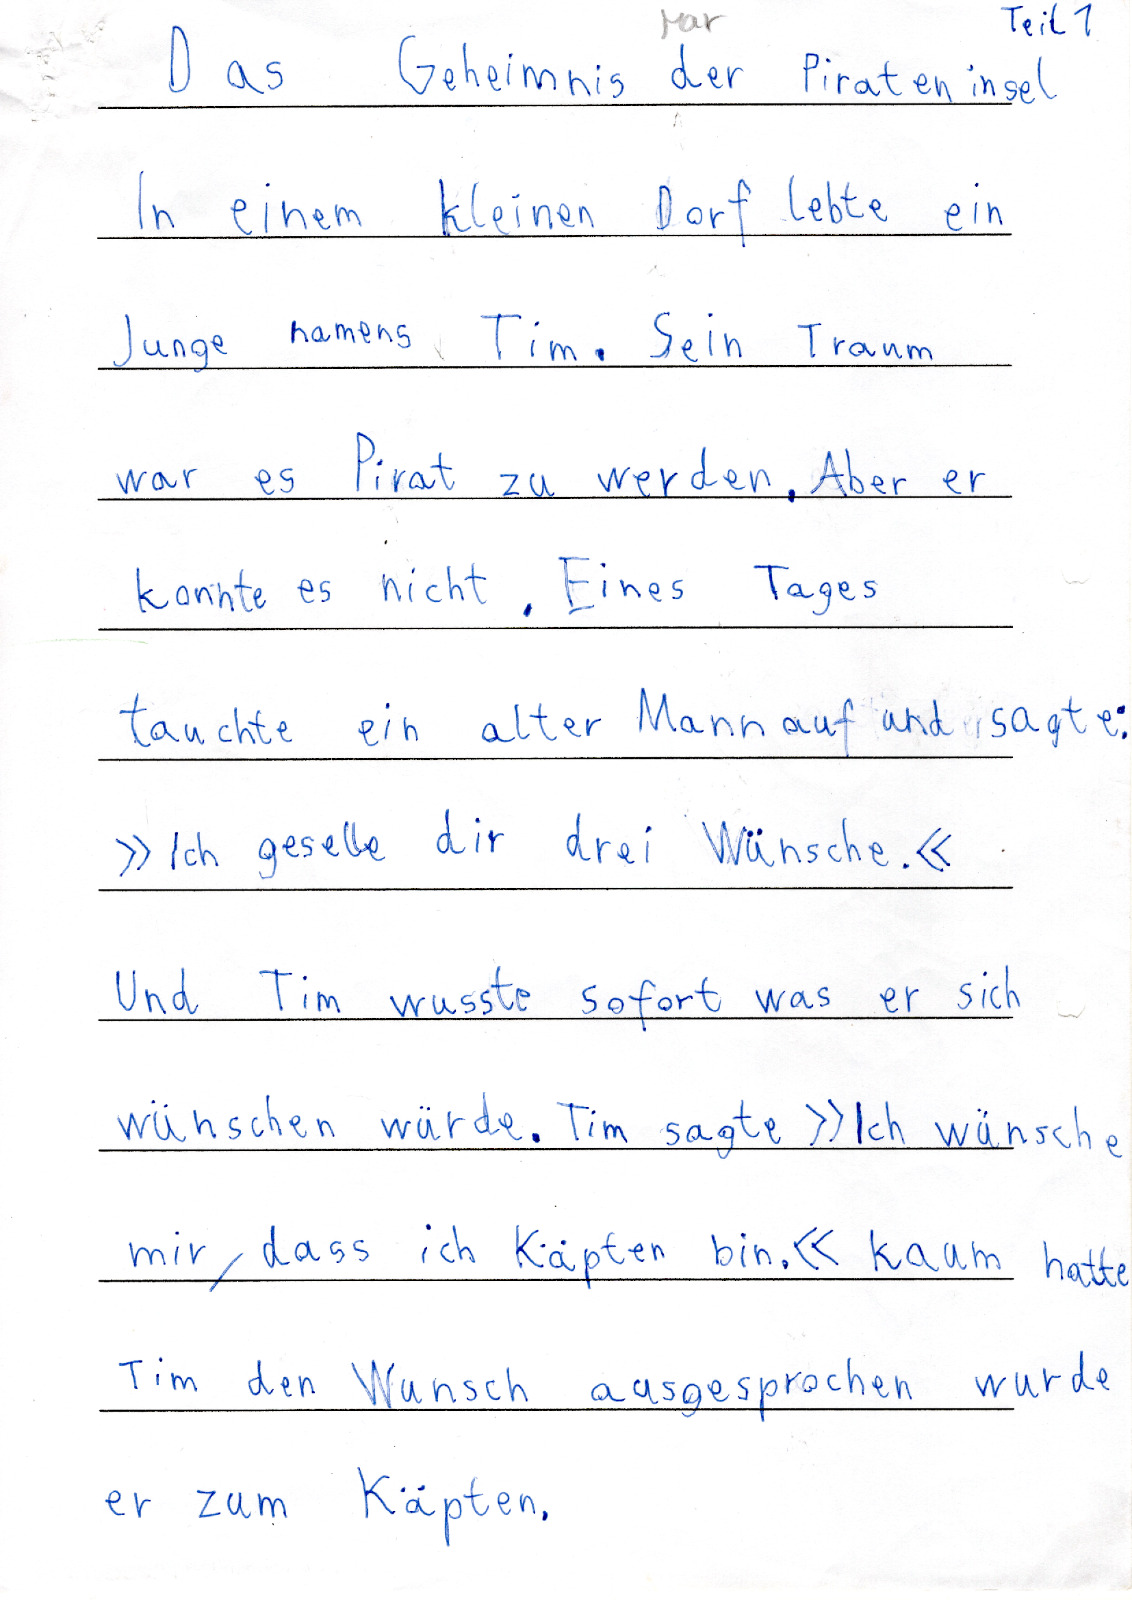 Teil 1
Das Geheimnis der Pirateninsel
In einem kleinen Dorf lebte ein
Junge namens Tim. Sein Traum
war es Pirat zu werden. Aber er
konnte es nicht. Eines Tages
tauchte ein alter Mann auf und sagte:
»Ich geselle dir drei Wünsche.«
Und Tim wusste sofort was er sich
wünschen würde. Tim sagte »Ich wünsche
mir, dass ich Käpten bin.« kaum hatte
Tim den Wunsch ausgesprochen wurde
er zum Käpten.